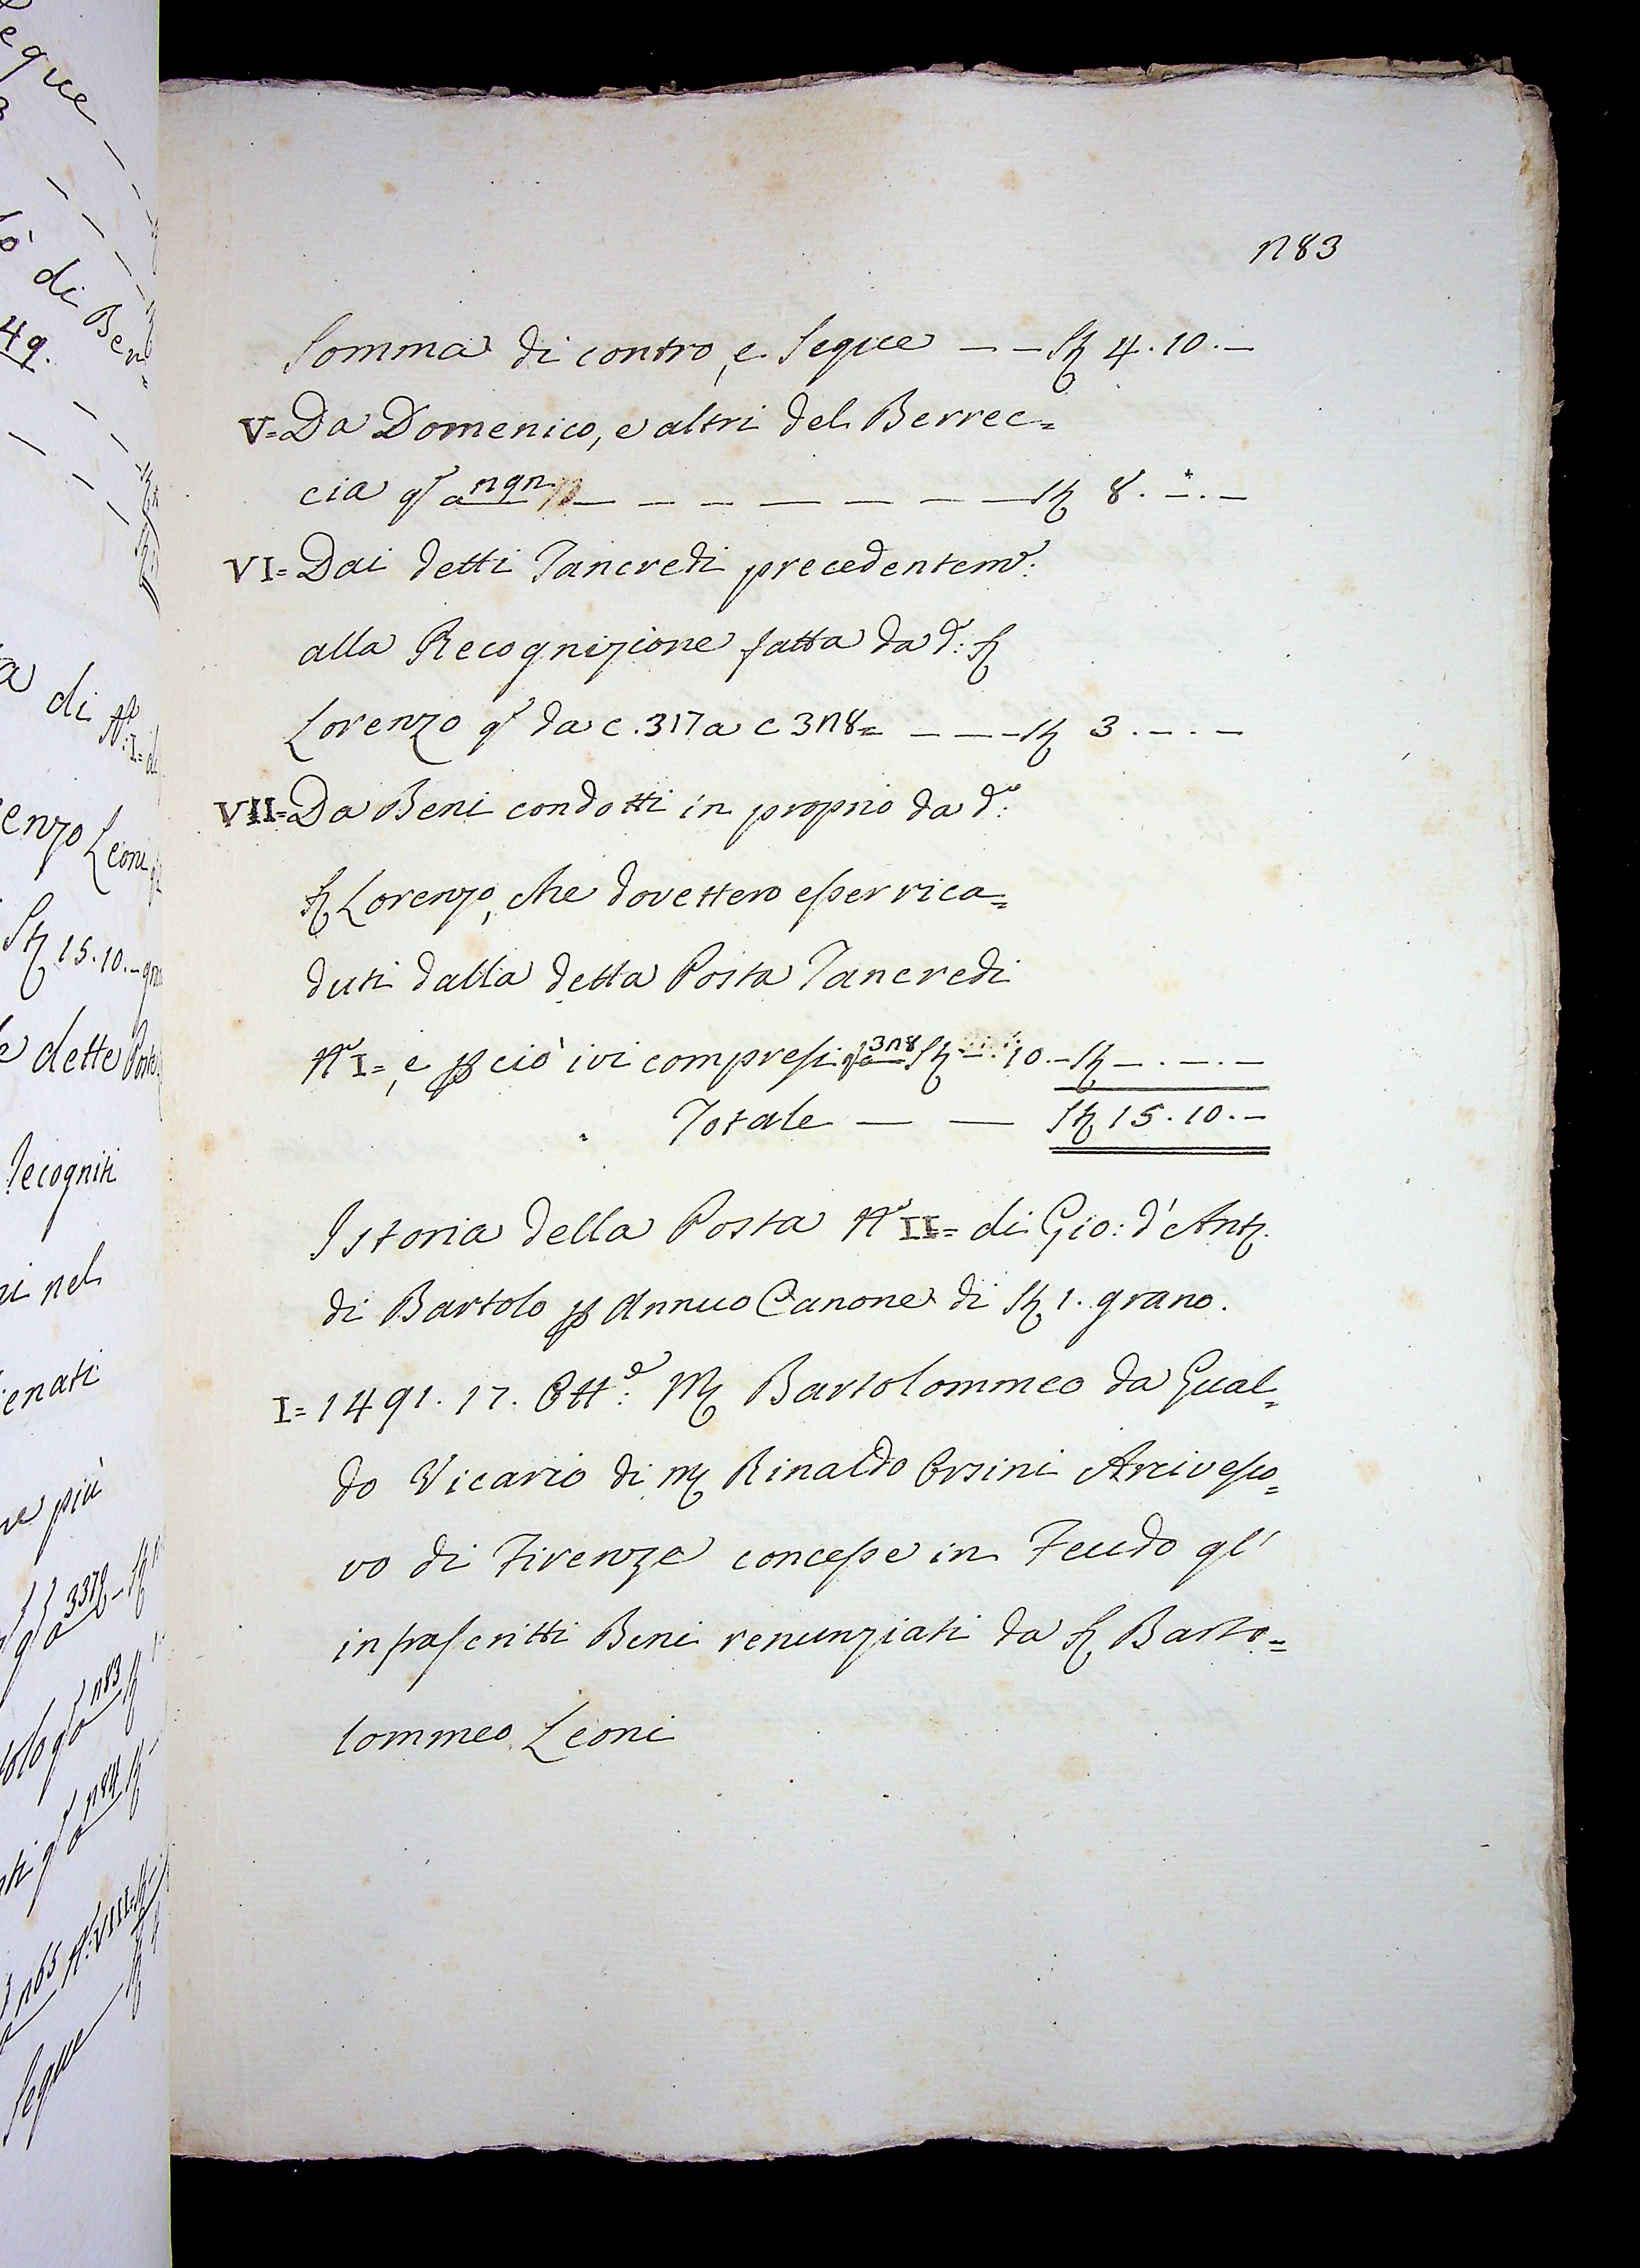 n83
Somma di contro, e Segue — — St 4. 10. —
V= Da Domenico, e altri del Berrec=
cia qͬ a n9n — — — — — — — St 8. —. —
VI= Dai detti Tancredi precedentemͤ:
alla Recognizione fatta da dͦ: S
Lorenzo qͬ da c. 317 a c 3n8= — — — St 3. —. —
VII= Da Beni condotti in proprio da dͦ:
S Lorenzo, che dovettero esser rica=
duti dalla detta Posta Tancredi
Nͦ I=, e p ciò ivi compresi qͬ a 3n8 St —. 10. — St —. —. —
Totale — — St 15. 10. —
Istoria della Posta Nͦ II= di Gio: d'Ant.
di Bartolo p Annuo Canone di St 1. grano.
I= 1491. 17. Ottͤ: M Bartolommeo da Gual=
do Vicario di M Rinaldo Orsini Arcivesco=
vo di Firenze concesse in Feudo gl'
infrascritti Beni renunziati da S Barto=
lommeo Leoni
di Ben
49.
di Nͦ: I=
enzo Leoni
St 15. 10. —
dette Poste
ni nel
enati
più
n83
n84
n65 Nͦ: VIII=
Segue